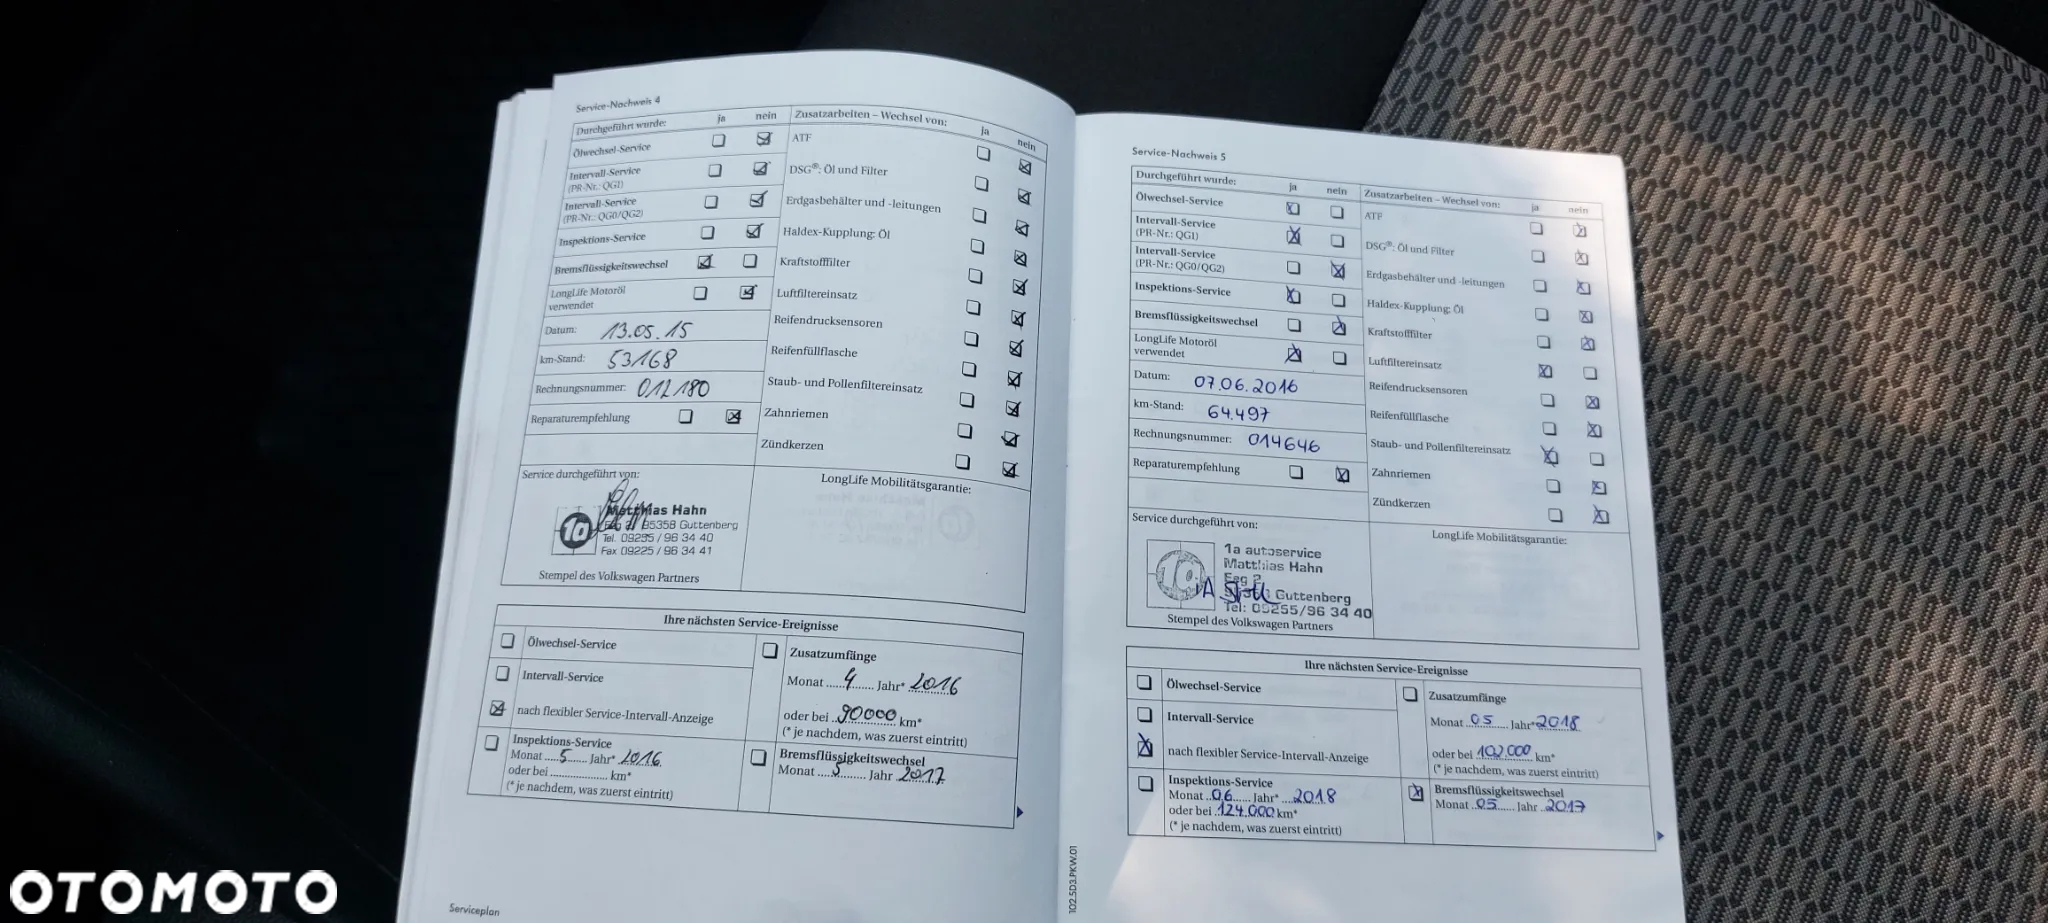 Service-Nachweis 4
Durchgeführt wurde: ja nein
Ölwechsel-Service
Intervall-Service
(PR-Nr.: QG1)
Intervall-Service
(PR-Nr.: QG0/QG2)
Inspektions-Service
Bremsflüssigkeitswechsel
LongLife Motoröl
verwendet
Datum: 13.05.15
km-Stand: 53168
Rechnungsnummer: 012180
Reparaturempfehlung
Zusatzarbeiten – Wechsel von: ja nein
ATF
DSG®: Öl und Filter
Erdgasbehälter und -leitungen
Haldex-Kupplung: Öl
Kraftstofffilter
Luftfiltereinsatz
Reifendrucksensoren
Reifenfüllflasche
Staub- und Pollenfiltereinsatz
Zahnriemen
Zündkerzen
Service durchgeführt von:
1a
Matthias Hahn
Eeg 2, 95358 Guttenberg
Tel. 09255 / 96 34 40
Fax 09225 / 96 34 41
Stempel des Volkswagen Partners
LongLife Mobilitätsgarantie:
Ihre nächsten Service-Ereignisse
Ölwechsel-Service
Intervall-Service
nach flexibler Service-Intervall-Anzeige
Inspektions-Service
Monat 5 Jahr* 2016
oder bei .................... km*
(* je nachdem, was zuerst eintritt)
Zusatzumfänge
Monat 4 Jahr* 2016
oder bei 90000 km*
(* je nachdem, was zuerst eintritt)
Bremsflüssigkeitswechsel
Monat 5 Jahr 2017
Serviceplan
Service-Nachweis 5
Durchgeführt wurde: ja nein
Ölwechsel-Service
Intervall-Service
(PR-Nr.: QG1)
Intervall-Service
(PR-Nr.: QG0/QG2)
Inspektions-Service
Bremsflüssigkeitswechsel
LongLife Motoröl
verwendet
Datum: 07.06.2016
km-Stand: 64.497
Rechnungsnummer: 014646
Reparaturempfehlung
Zusatzarbeiten – Wechsel von: ja nein
ATF
DSG®: Öl und Filter
Erdgasbehälter und -leitungen
Haldex-Kupplung: Öl
Kraftstofffilter
Luftfiltereinsatz
Reifendrucksensoren
Reifenfüllflasche
Staub- und Pollenfiltereinsatz
Zahnriemen
Zündkerzen
Service durchgeführt von:
1a
1a autoservice
Matthias Hahn
Eeg 2
Guttenberg
Tel: 09255/96 34 40
Stempel des Volkswagen Partners
LongLife Mobilitätsgarantie:
Ihre nächsten Service-Ereignisse
Ölwechsel-Service
Intervall-Service
nach flexibler Service-Intervall-Anzeige
Inspektions-Service
Monat 06 Jahr* 2018
oder bei 124.000 km*
(* je nachdem, was zuerst eintritt)
Zusatzumfänge
Monat 05 Jahr* 2018
oder bei 102.000 km*
(* je nachdem, was zuerst eintritt)
Bremsflüssigkeitswechsel
Monat 05 Jahr 2017
102.5D3.PKW.01
OTOMOTO